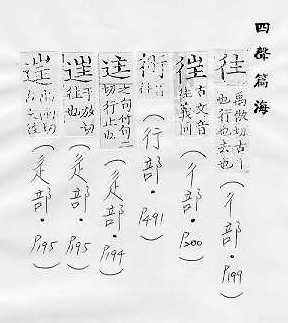 四聲篇海
往 禹敞切古 也行也去也 (彳部.P199)
古文音往義同 (彳部.P200)
音 (行部.P491)
迬 之句竹句二切行止也 (辵部.P194)
于放切往也 (辵部.P195)
(辵部.P195)